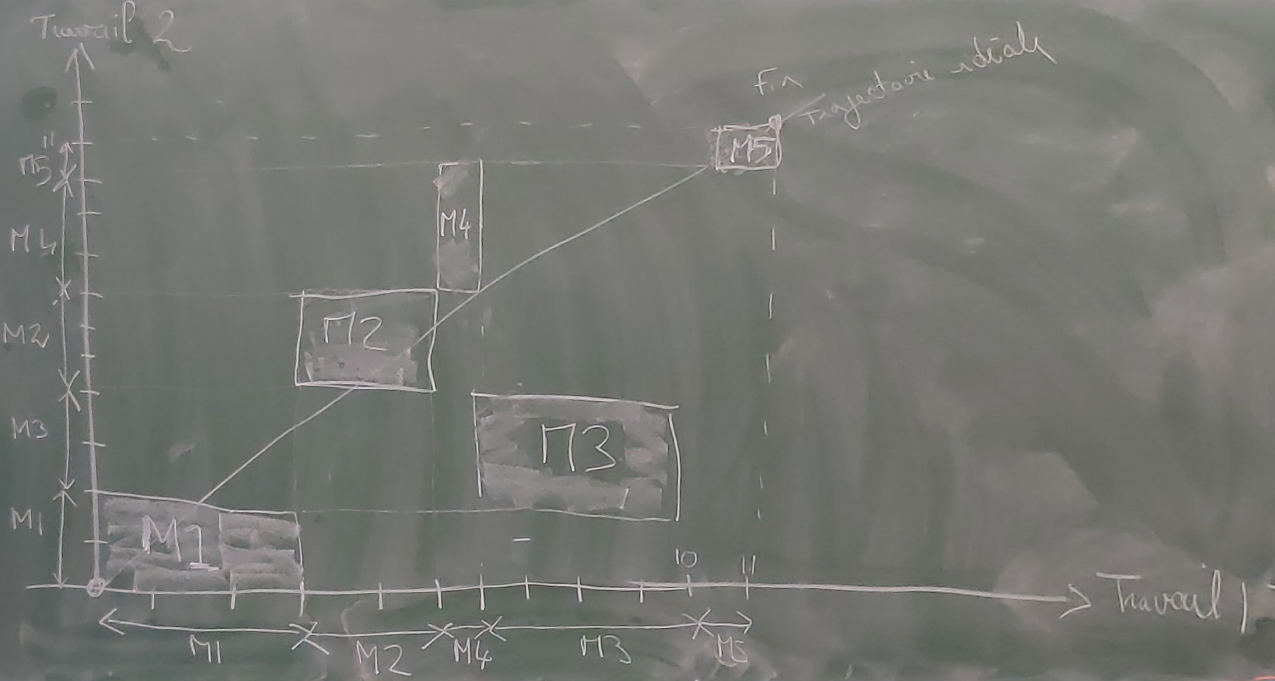 Travail 2
Fin
Trajectoire idéale
11
M5
M5
M4
M4
M2
M2
M3
M3
M1
M1
10
11
Travail 1
M1
M2
M4
M3
M5